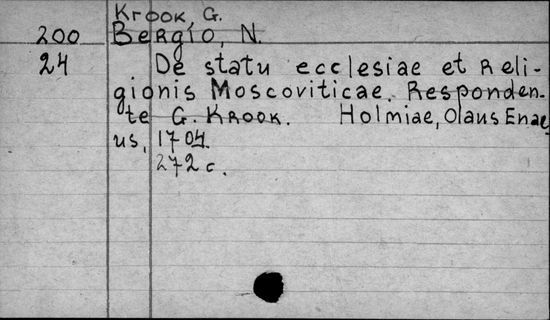 Krook, G.
200 Bergio, N.
24 De statu ecclesiae et Reli-
gionis Moscoviticae. Responden-
te G. Krook. Holmiae, Olaus Enae
us, 1704.
272 c.